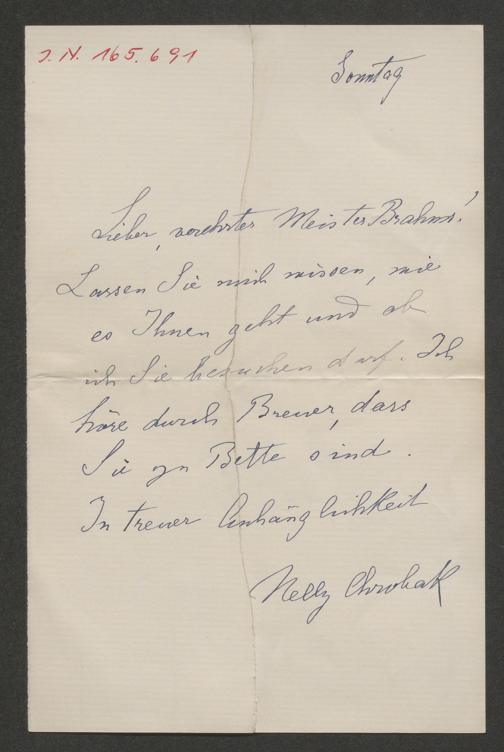 J. N. 165.691
Sonntag
Lieber, verehrter Meister Brahms!
Lassen Sie mich wissen, wie
es Ihnen geht und ob
ich Sie besuchen darf. Ich
höre durch Breuer, dass
Sie zu Bette sind.
In treuer Anhänglichkeit
Nelly Chrobak